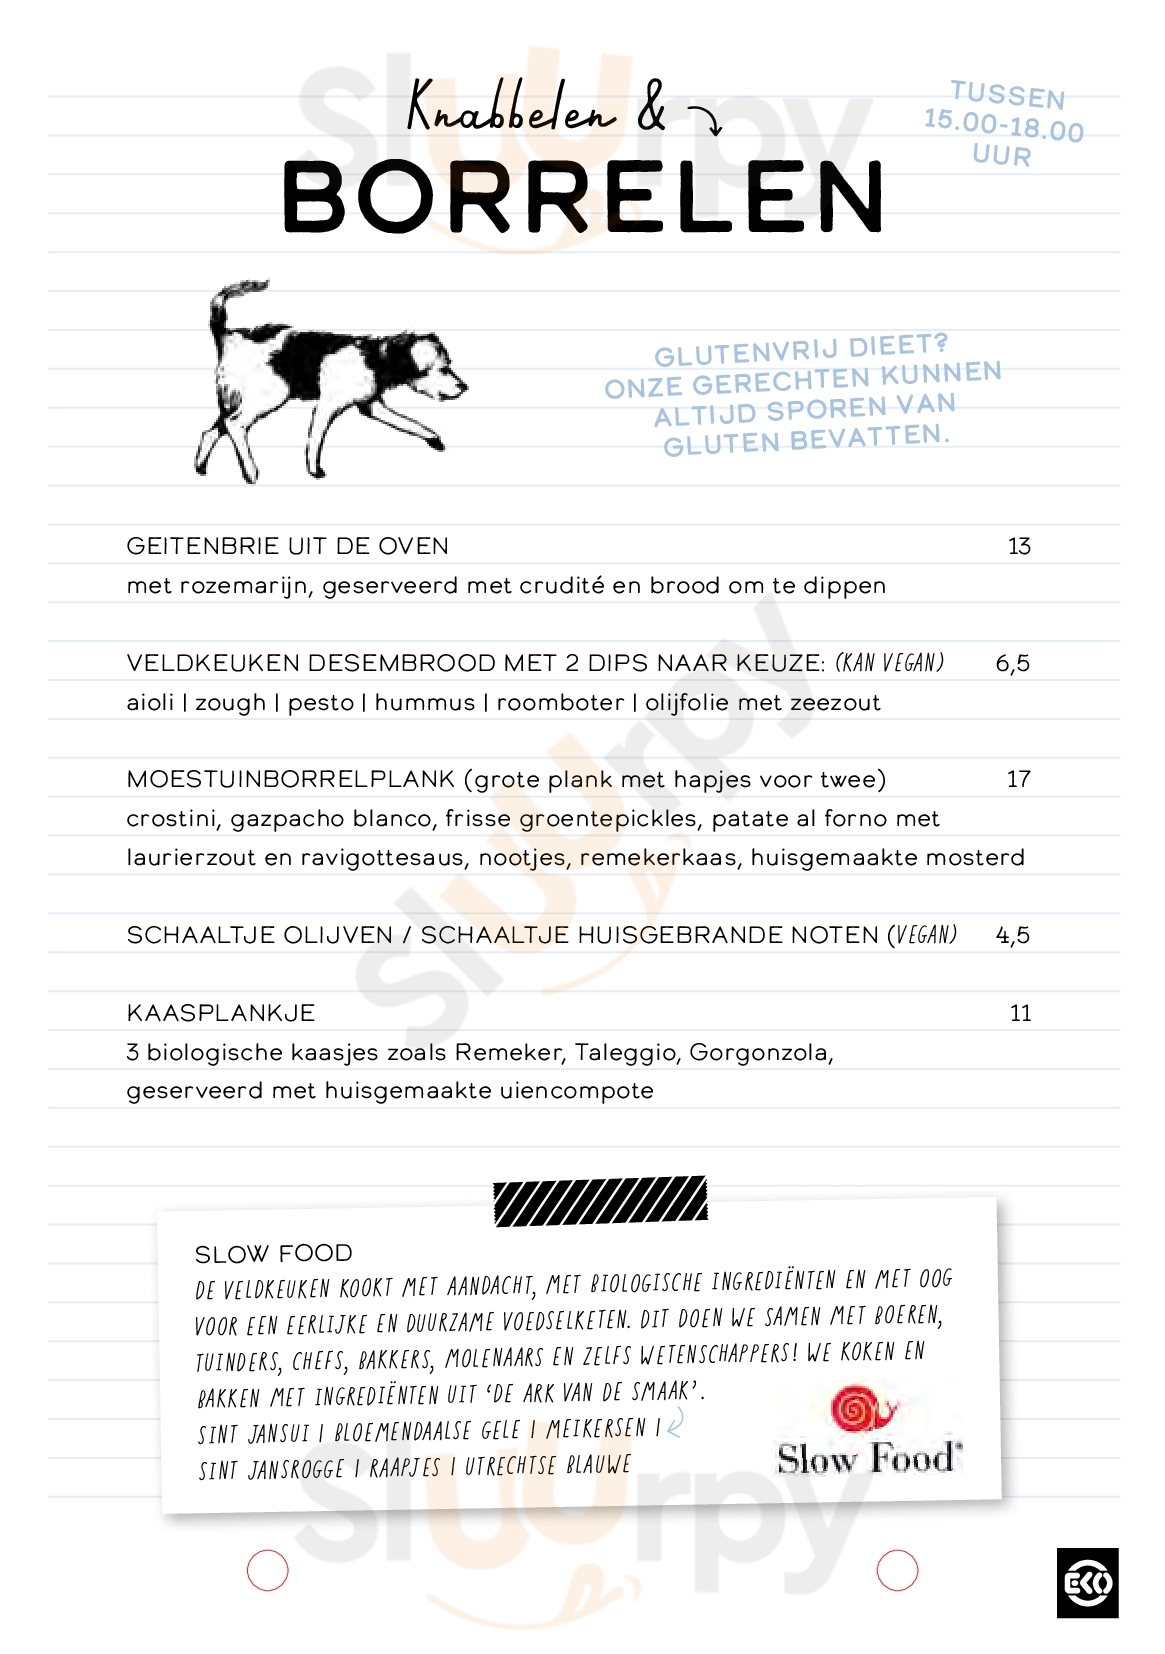 Knabbelen &
BORRELEN
TUSSEN
15.00-18.00
UUR
GLUTENVRIJ DIEET?
ONZE GERECHTEN KUNNEN
ALTIJD SPOREN VAN
GLUTEN BEVATTEN.
GEITENBRIE UIT DE OVEN 13
met rozemarijn, geserveerd met crudité en brood om te dippen
VELDKEUKEN DESEMBROOD MET 2 DIPS NAAR KEUZE: (KAN VEGAN) 6,5
aioli | zough | pesto | hummus | roomboter | olijfolie met zeezout
MOESTUINBORRELPLANK (grote plank met hapjes voor twee) 17
crostini, gazpacho blanco, frisse groentepickles, patate al forno met
laurierzout en ravigottesaus, nootjes, remekerkaas, huisgemaakte mosterd
SCHAALTJE OLIJVEN / SCHAALTJE HUISGEBRANDE NOTEN (VEGAN) 4,5
KAASPLANKJE 11
3 biologische kaasjes zoals Remeker, Taleggio, Gorgonzola,
geserveerd met huisgemaakte uiencompote
SLOW FOOD
DE VELDKEUKEN KOOKT MET AANDACHT, MET BIOLOGISCHE INGREDIËNTEN EN MET OOG
VOOR EEN EERLIJKE EN DUURZAME VOEDSELKETEN. DIT DOEN WE SAMEN MET BOEREN,
TUINDERS, CHEFS, BAKKERS, MOLENAARS EN ZELFS WETENSCHAPPERS! WE KOKEN EN
BAKKEN MET INGREDIËNTEN UIT ‘DE ARK VAN DE SMAAK’.
SINT JANSUI | BLOEMENDAALSE GELE | MEIKERSEN |
SINT JANSROGGE | RAAPJES | UTRECHTSE BLAUWE
Slow Food®
EKO
Sluurpy
Sluurpy
Sluurpy